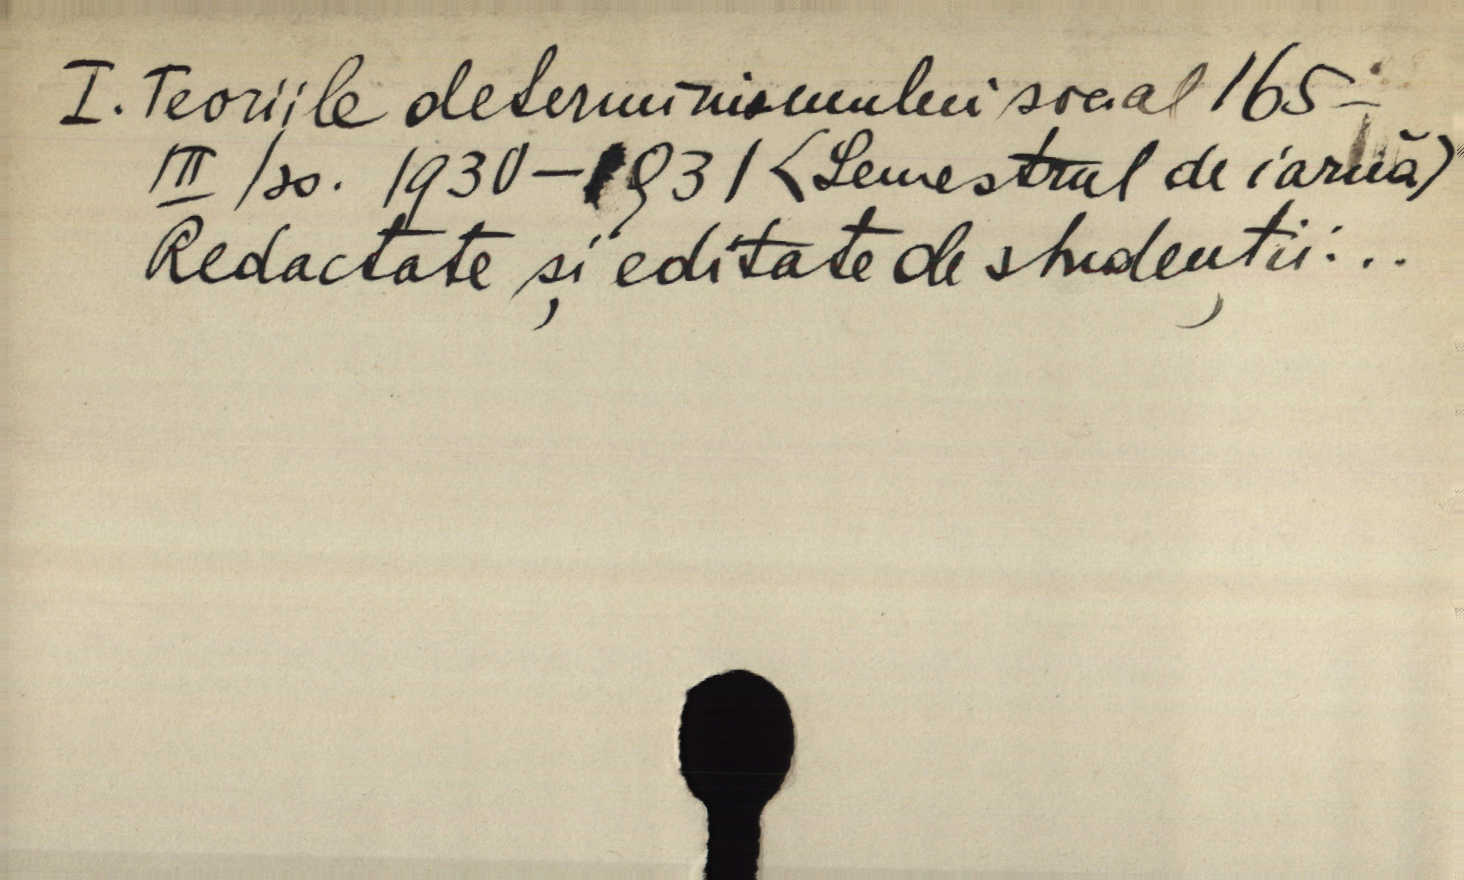 I. Teoriile determinismului social 165 –
III / so. 1930 – 1931 <Semestrul de iarnă)
Redactate și editate de studenții: ...